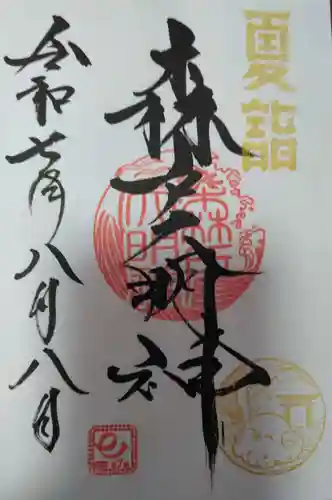 夏詣
森戸大明神
令和七年八月八日